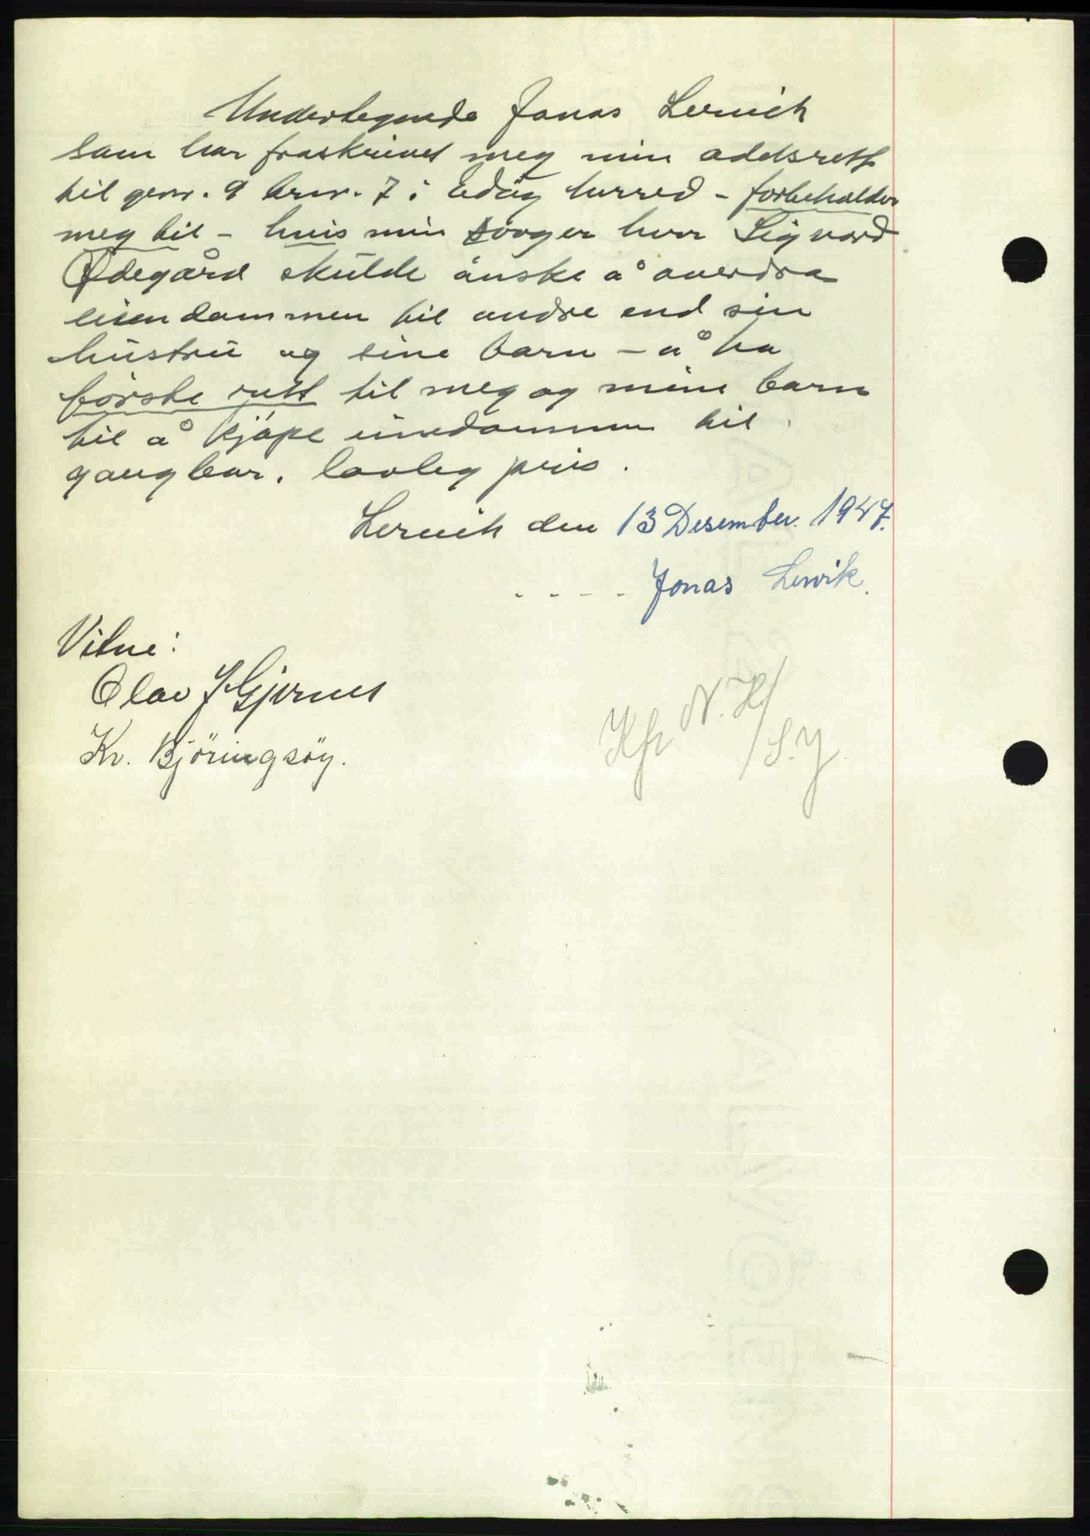 Undertegnede Jonas Lervik
som har fraskrivet meg min odelsrett
til gnr. 9 brnr. 7 i Edøy herred - forbeholder
meg til - hvis min svoger herr Sigvard
Ødegård skulde ønske å overdra
eiendommen til andre end sin
hustru og sine barn - å ha
første rett til meg og mine barn
til å kjøpe eiendommen til
gangbar, lovleg pris.
Lervik den 13 Desember 1947.
Jonas Lervik.
Vitne:
Olav J Gjernes
Kr. Björingsöy.
N.H/
/S.Y.